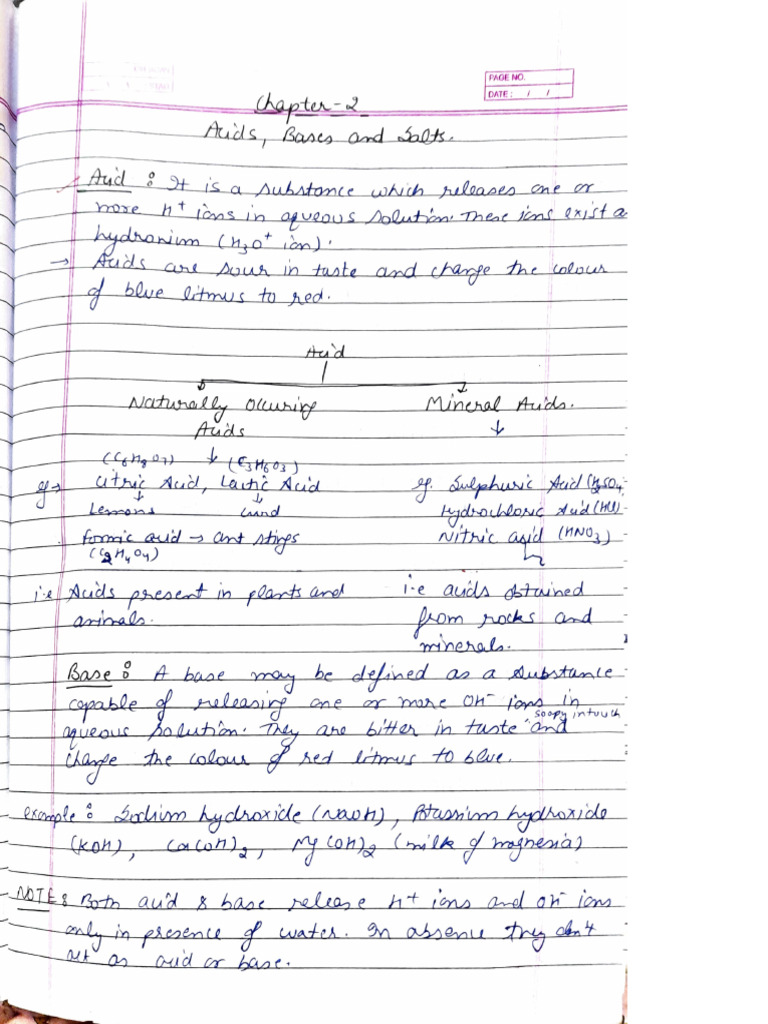 PAGE NO.
DATE: / /
Chapter-2
Acids, Bases and Salts.
Acid : It is a substance which releases one or
more H+ ions in aqueous solution. These ions exist a
hydronium (H3O+ ion).
→ Acids are sour in taste and change the colour
of blue litmus to red.
Acid
Naturally Occuring Acids
Mineral Acids.
(C6H8O7) (C3H6O3)
eg → Citric Acid, Lactic Acid
Lemons Curd
formic acid → ant stings
(C2H4O4)
eg. Sulphuric Acid (H2SO4
Hydrochloric Acid (HCl)
Nitric acid (HNO3)
i.e Acids present in plants and
animals.
i.e acids obtained
from rocks and
minerals.
Base : A base may be defined as a substance
capable of releasing one or more OH- ions in
aqueous solution. They are bitter in taste soapy in touch and
change the colour of red litmus to blue.
example : Sodium hydroxide (NaOH), Potassium hydroxide
(KOH), Ca(OH)2, Mg(OH)2 (milk of magnesia)
NOTE : Both acid & base release H+ ions and OH- ions
only in presence of water. In absence they don't
act as acid or base.